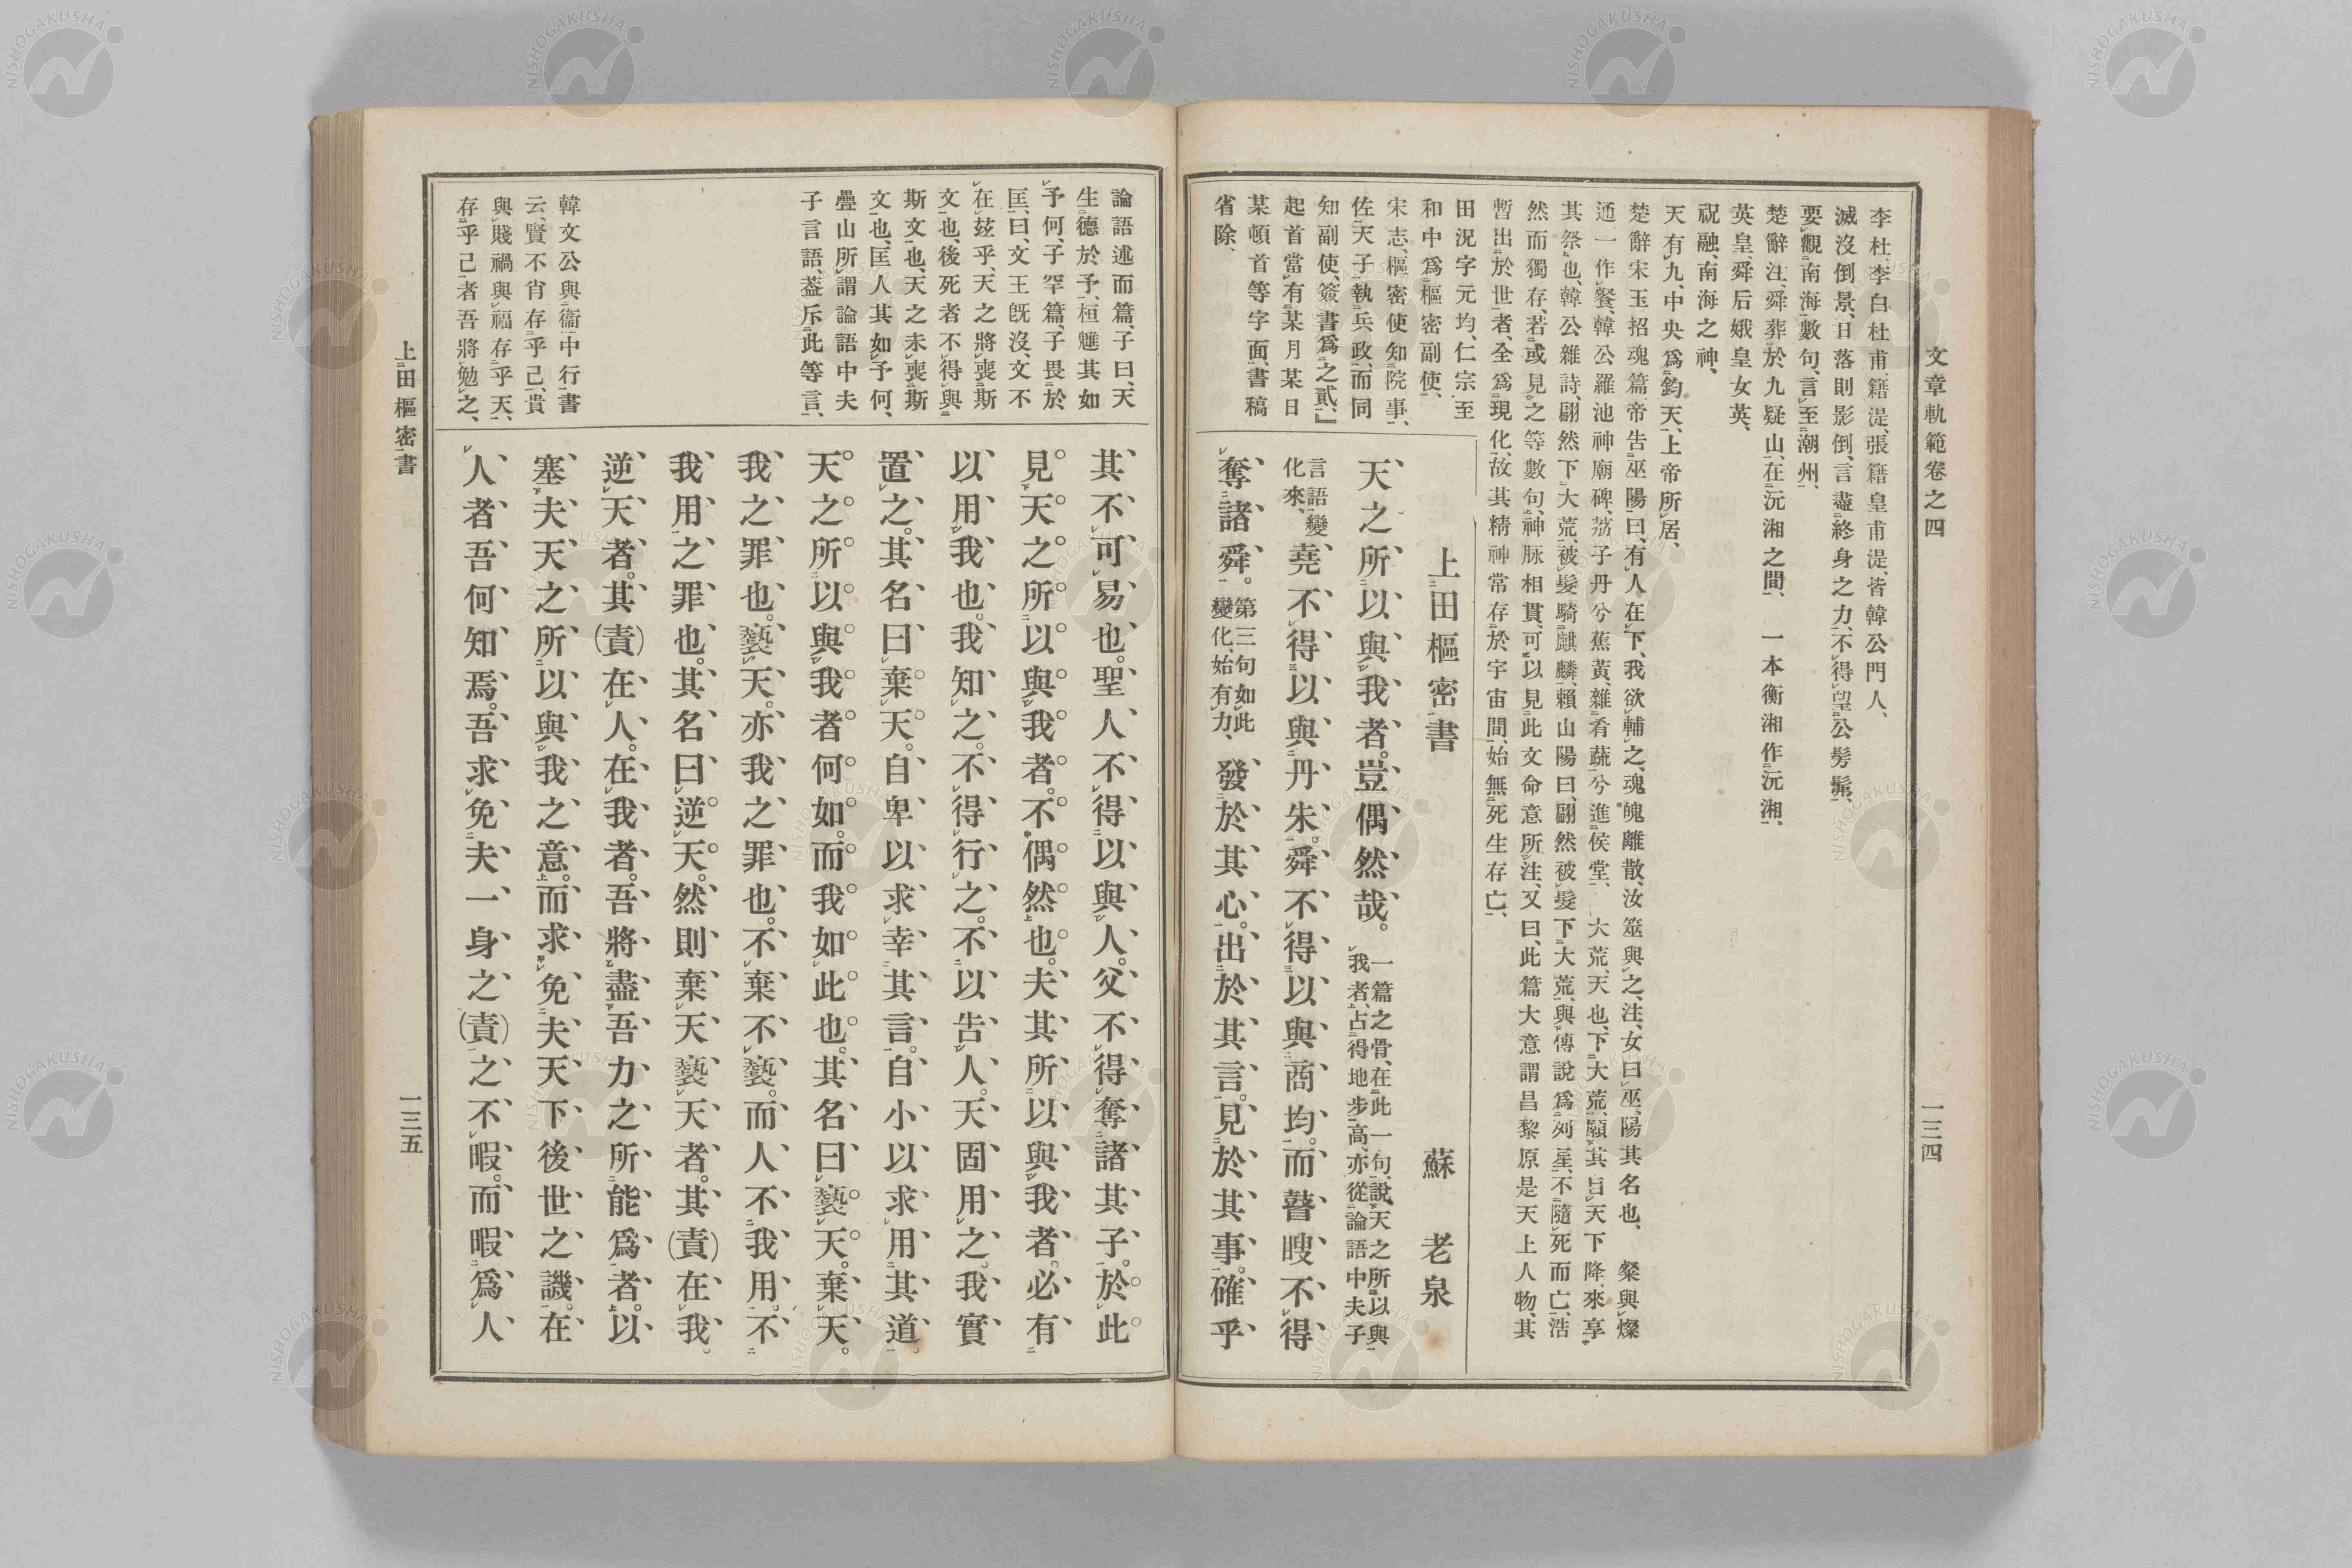 文章軌範卷之四
一三四
李杜、李白杜甫、籍湜、張籍皇甫湜、皆韓公門人、
滅沒倒景、日落則影倒、言盡終身之力、不得望公髣髴、
要觀南海數句、言至潮州、
楚辭注、舜葬於九疑山、在沅湘之間、一本衡湘作沅湘、
英皇、舜后娥皇女英、
祝融、南海之神、
天有九、中央爲鈞天、上帝所居、
楚辭宋玉招魂篇、帝告巫陽曰、有人在下、我欲輔之、魂魄離散、汝筮與之、注、女曰巫、陽其名也、粲與燦
通一作餐、韓公羅池神廟碑、荔子丹兮蕉黃、雜肴蔬兮進侯堂、大荒、天也、下大荒、願其自天下降、來享
其祭也、韓公雜詩、翩然下大荒、被髮騎麒麟、賴山陽曰、翩然被髮下大荒、與傳說爲列星、不隨死而亡、浩
然而獨存、若或見之等數句、神脉相貫、可以見此文命意所注、又曰、此篇大意謂昌黎原是天上人物、其
暫出於世者、全爲現化、故其精神常存於宇宙間、始無死生存亡、
田況字元均、仁宗至
和中爲樞密副使、
宋志、樞密使知院事、
佐天子執兵政、而同
知副使、簽書爲之貳、』
起首當有某月某日
某頓首等字面、書稿
省除、
上田樞密書　蘇老泉
天之所以與我者。豈偶然哉。一篇之骨、在此一句、說天之所以與
我者、占得地步高、亦從論語中夫子
言語變
化來、堯不得以與丹朱。舜不得以與商均。而瞽瞍不得
奪諸舜。第三句如此
變化、始有力、發於其心。出於其言。見於其事。確乎
論語述而篇、子曰、天
生德於予、桓魋其如
予何、子罕篇、子畏於
匡、曰、文王旣沒、文不
在玆乎、天之將喪斯
文也、後死者不得與
斯文也、天之未喪斯
文也、匡人其如予何、
疊山所謂論語中夫
子言語、葢斥此等言、
韓文公與衞中行書
云、賢不肖存乎己、貴
與賤禍與福存乎天、
存乎己者吾將勉之、
其不可易也。聖人不得以與人。父不得奪諸其子。於此
見天之所以與我者。不偶然也。夫其所以與我者。必有
以用我也。我知之。不得行之。不以告人。天固用之。我實
置之。其名曰棄天。自卑以求幸其言。自小以求用其道。
天之所以與我者何如。而我如此也。其名曰褻天。棄天。
我之罪也。褻天。亦我之罪也。不棄不褻。而人不我用。不
我用之罪也。其名曰逆天。然則棄天褻天者。其(責)在我。
逆天者。其(責)在人。在我者。吾將盡吾力之所能爲者。以
塞夫天之所以與我之意。而求免夫天下後世之譏。在
人者吾何知焉。吾求免夫一身之(責)之不暇。而暇爲人
上田樞密書
一三五
NISHOGAKUSHA